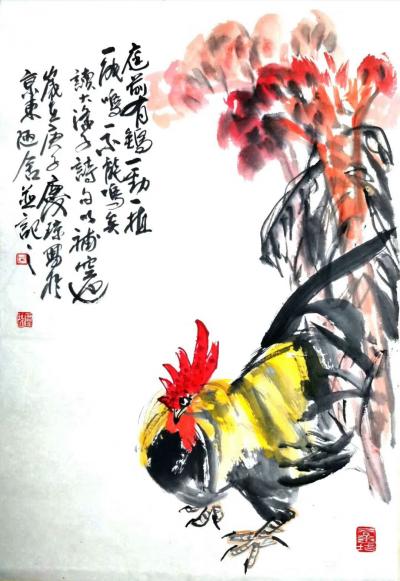 庭前有鷄一動一植
一能鳴一不能鳴矣
讀大滌子詩句以補空也
歲在庚子慶寫於
京東陋舍並記之